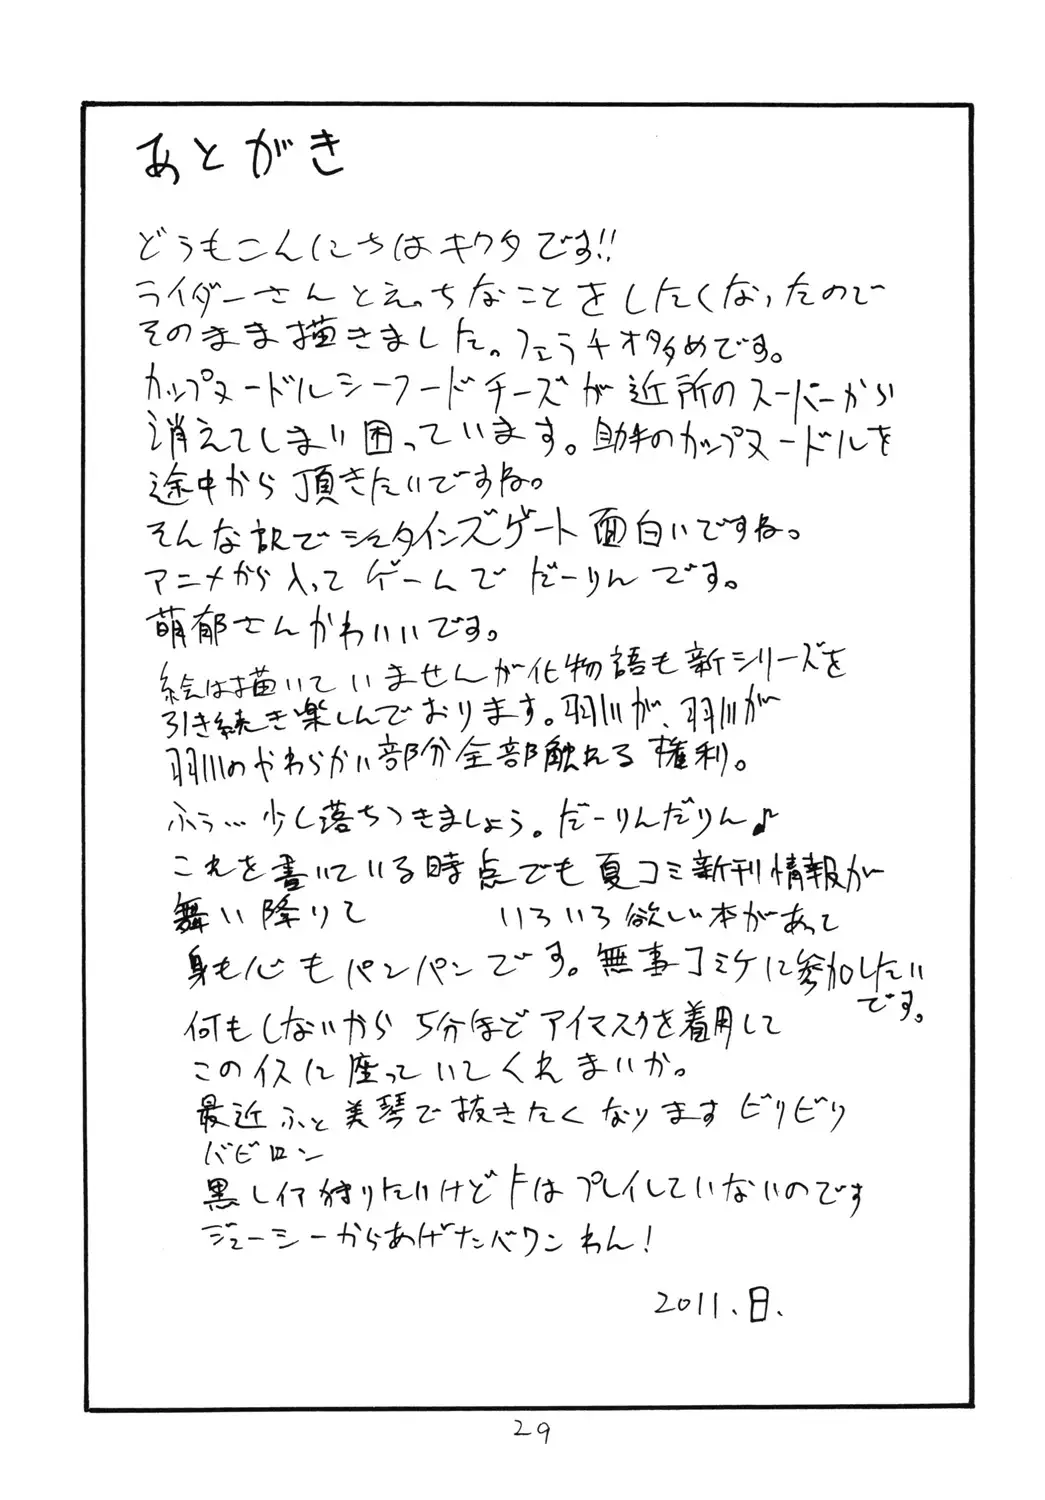 あとがき
どうもこんにちはキクタです!!
ライダーさんとえっちなことをしたくなったので
そのまま描きました。フェラチオ多めです。
カップヌードルシーフードチーズが近所のスーパーから
消えてしまい困っています。助手のカップヌードルを
途中から頂きたいですね。
そんな訳でシュタインズゲート面白いですね。
アニメから入ってゲームでだーりんです。
萌郁さんかわいいです。
絵は描いていませんが化物語も新シリーズを
引き続き楽しんでおります。羽川が、羽川が
羽川のやわらかい部分全部触れる権利。
ふぅ…少し落ちつきましょう。だーりんだりん♪
これを書いている時点でも夏コミ新刊情報が
舞い降りて いろいろ欲しい本があって
身も心もパンパンです。無事コミケに参加したい
です。
何もしないから5分ほどアイマスクを着用して
このイスに座っていてくれまいか。
最近ふと美琴で抜きたくなります ビリビリ
バビロン
黒レイア狩りたいけどFはプレイしていないのです
ジューシーからあげナンバワンわん!
2011.日.
29